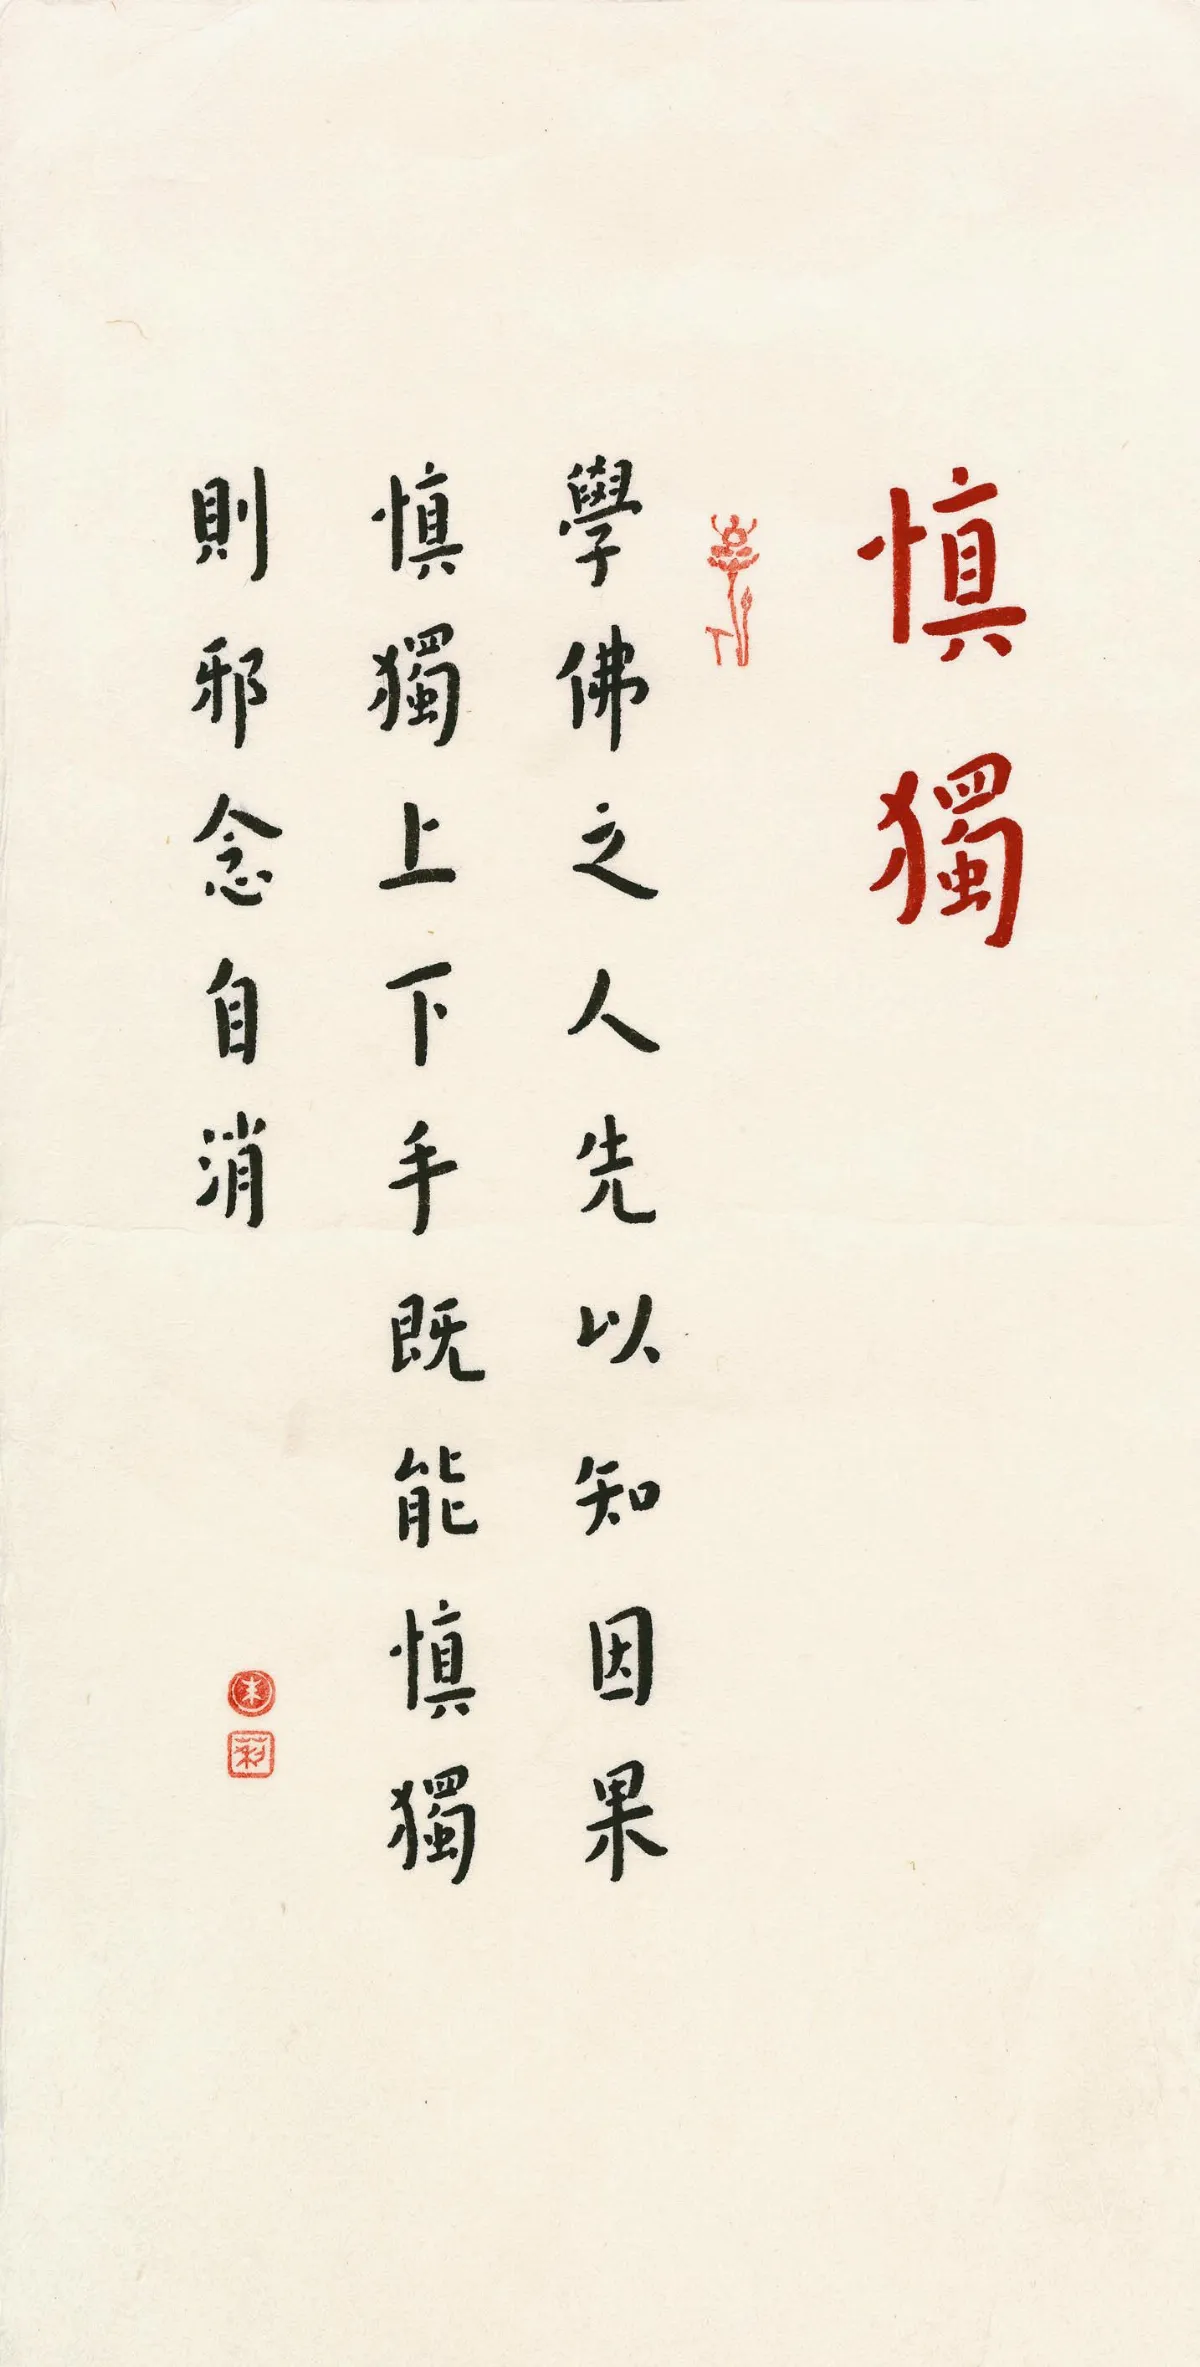 慎獨
學佛之人先以知因果
慎獨上下手既能慎獨
則邪念自消